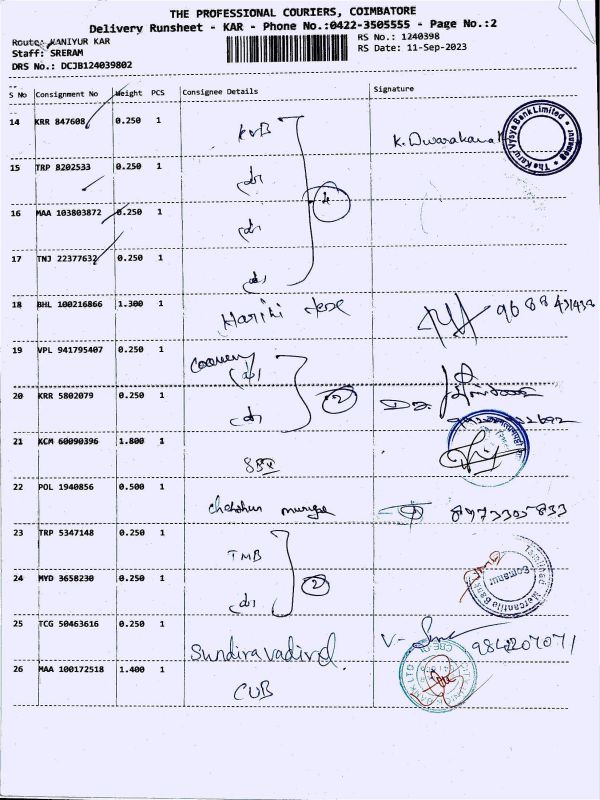 THE PROFESSIONAL COURIERS, COIMBATORE
Delivery Runsheet - KAR - Phone No.:0422-3505555 - Page No.:2
Route: KANIYUR KAR
RS No.: 1240398
Staff: SRERAM
RS Date: 11-Sep-2023
DRS No.: DCJB124039802
S No Consignment No Weight PCS Consignee Details Signature
14 KRR 847608 0.250 1 KVB K. Dwarakanath
The Karur Vysya Bank Limited
15 TRP 8202533 0.250 1 do
16 MAA 103803872 0.250 1 do 4
17 TNJ 22377632 0.250 1 do
18 BHL 100216866 1.300 1 Harini
19 VPL 941795407 0.250 1 (do)
20 KRR 5802079 0.250 1 do 2
21 KCM 60090396 1.800 1 SBI
22 POL 1940856 0.500 1 8973305833
23 TRP 5347148 0.250 1 TMB
Tamilnad Mercantile Bank
Somanur
24 MYD 3658230 0.250 1 do 2
25 TCG 50463616 0.250 1 Sundiravadivel 9842207071
26 MAA 100172518 1.400 1 CUB